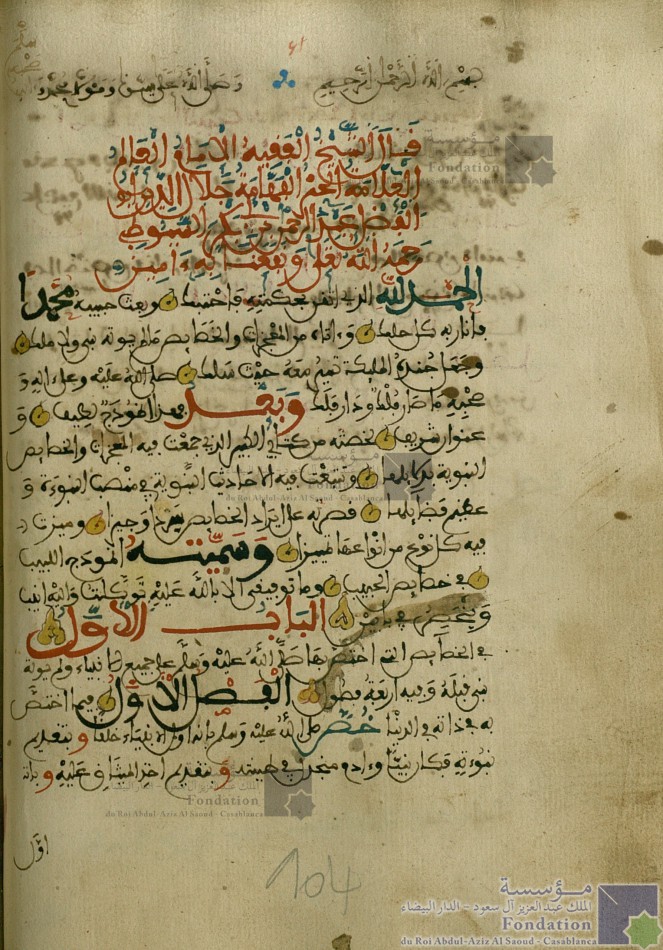 بسم الله الرحمن الرحيم وصلى الله على سيدنا ومولانا محمد
قال الشيخ الفقيه الامام العالم
العلامة البحر الفهامة جلال الدين ابو
الفضل عبد الرحمن بن ابي بكر السيوطي
رحمه الله تعلى ونفعنا به ءامين
الحمد لله الذي اتقن بحكمته ما احتبك وبعث حبيبه محمدا
فانار به كل حلك وءاتاه من المعجزات والخصايص ما لم يوته نبي ولا ملك
وجعل جنده الملئكة تسير معه حيث سلك صلى الله عليه وعلى اله و
صحبه ما صار فلك ودار فلك وبعد فهذا انموذج لطيف و
عنوان شريف لخصته من كتابي الكبير الذي جمعت فيه المعجزات والخصايص
النبوية بدلايلها وتتبعت فيه الاحاديث في منصب النبوءة و
عظيم فضايلها قصرته على ايراد الخصايص سردا وجيزا وميزت
فيه كل نوع من انواعها تمييزا وسميته انموذج اللبيب
في خصايص الحبيب وما توفيقي الا بالله عليه توكلت واليه انيب
وينحصر في بابين الباب الاول
في الخصايص التي اختص بها صلى الله عليه وسلم على جميع الانبياء ولم يوته
نبي قبله وفيه اربعة فصول الفصل الاول فيما اختص
به في ذاته في الدنيا خص صلى الله عليه وسلم بانه اول الانبياء خلقا وبتقديم
نبوءته فكان نبيا وءادم منجدل في طينته وبتقديم اخذ الميثاق عليه وبانه
اول
104
مؤسسة
الملك عبد العزيز آل سعود - الدار البيضاء
Fondation
du Roi Abdul-Aziz Al Saoud - Casablanca